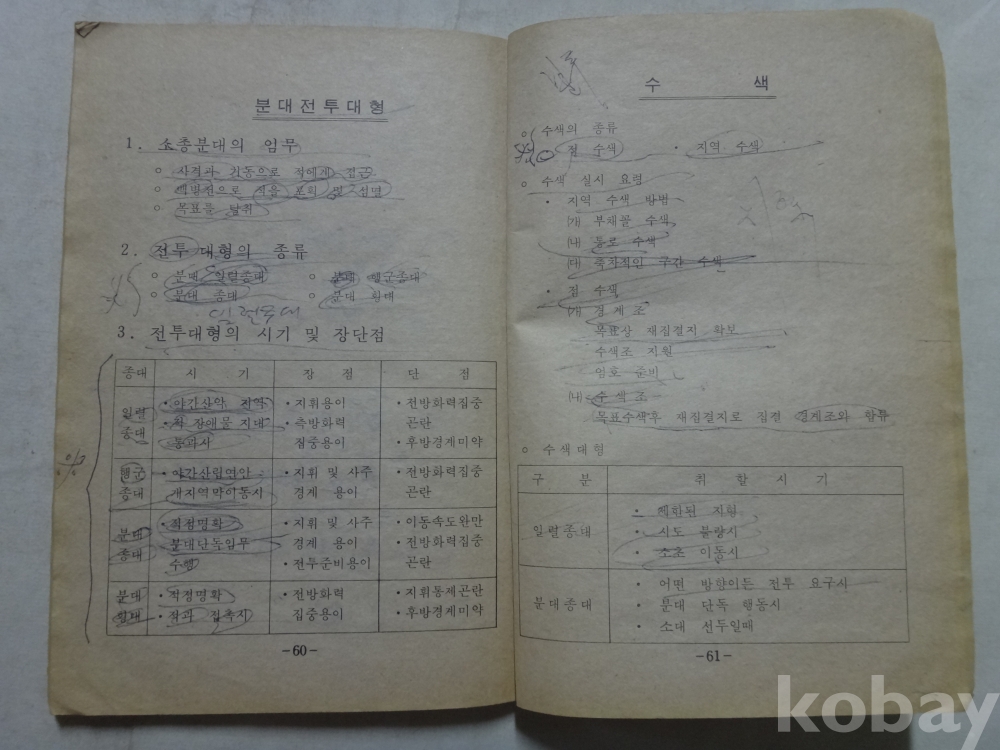 분대전투대형
1. 소총분대의 임무
○ 사격과 기동으로 적에게 접근
○ 백병전으로 적을 포획 및 섬멸
○ 목표를 탈취
2. 전투대형의 종류
○ 분대 일렬종대 ○ 분대 행군종대
○ 분대 종대 ○ 분대 횡대
3. 전투대형의 시기 및 장단점
종대 시 기 장 점 단 점
일렬 종대
• 야간산악 지역
• 장애물 지대
통과시
• 지휘용이
• 측방화력
집중용이
• 전방화력집중
곤란
• 후방경계미약
행군 종대
• 야간산림연안
개지역약이동시
• 지휘 및 사주
경계 용이
• 전방화력집중
곤란
분대 종대
• 적정명확
분대단독임무
수행
• 지휘 및 사주
경계 용이
• 전투준비용이
• 이동속도완만
• 전방화력집중
곤란
분대 횡대
• 적정명확
• 적과 접촉시
• 전방화력
집중용이
• 지휘통제곤란
• 후방경계미약
-60-
수 색
○ 수색의 종류
• 점 수색 • 지역 수색
○ 수색 실시 요령
• 지역 수색 방법
(개 부채꼴 수색
(내 통로 수색
(대 축차적인 구간 수색
• 점 수색
(개 경계조
목표상 재집결지 확보
수색조 지원
엄호 준비
(나) 수색조
목표수색후 재집결지로 집결 경계조와 합류
○ 수색대형
구 분 취 할 시 기
일렬종대
• 제한된 지형
• 시도 불량시
• 소로 이동시
분대종대
• 어떤 방향이든 전투 요구시
• 분대 단독 행동시
• 소대 선두일때
-61-
kobay